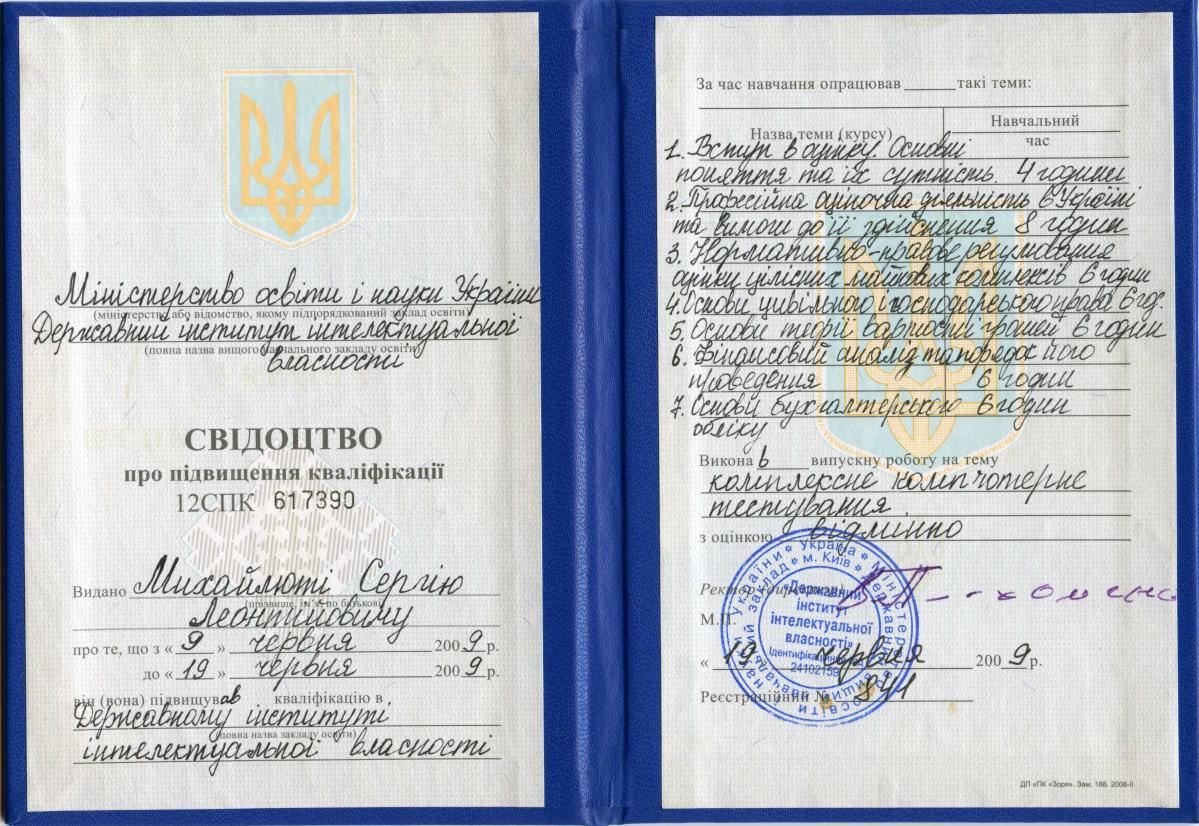 Міністерство освіти і науки України
(міністерство або відомство, якому підпорядкований заклад освіти)
Державний інститут інтелектуальної
(повна назва вищого навчального закладу освіти)
власності
СВІДОЦТВО
про підвищення кваліфікації
12СПК 617390
Видано Михайлюті Сергію
(прізвище, ім'я, по батькові)
Леонтійовичу
про те, що з « 9 » червня 2009 р.
до « 19 » червня 2009 р.
він (вона) підвищував кваліфікацію в
Державному інституті
(повна назва закладу освіти)
інтелектуальної власності
За час навчання опрацював такі теми:
Назва теми (курсу)
Навчальний
час
1. Вступ в оцінку. Основні
поняття та їх сутність. 4 години
2. Професійна оціночна діяльність в Україні
та вимоги до її здійснення 8 годин
3. Нормативно-правове регулювання
оцінки цілісних майнових комплексів 6 годин
4. Основи цивільного і господарського права 6 год.
5. Основи теорії вартості грошей 6 годин
6. Фінансовий аналіз та порядок його
проведення 6 годин
7. Основи бухгалтерського 6 годин
обліку
Виконав випускну роботу на тему
комплексне комп'ютерне
тестування
з оцінкою відмінно
Ректор
М.П.
« 19 » червня 2009 р.
Реєстраційний № 941
Міністерство освіти і науки України
Державний вищий навчальний заклад м. Київ
«Державний
інститут
інтелектуальної
власності»
24102159
ДП «ПК «Зоря». Зам. 188. 2008-ІІ